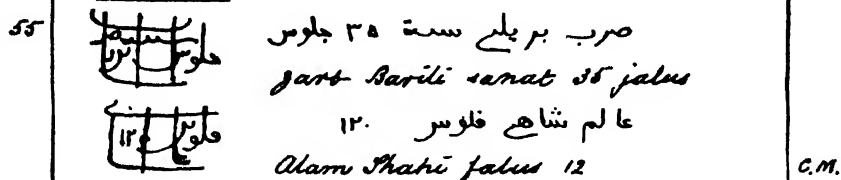 55
ضرب بریلے سنة ٣۵ جلوس
Jarb Barili sanat 35 jalus
عالم شاهے فلوس ١٢٠
Alam Shahi falus 12
C.M.